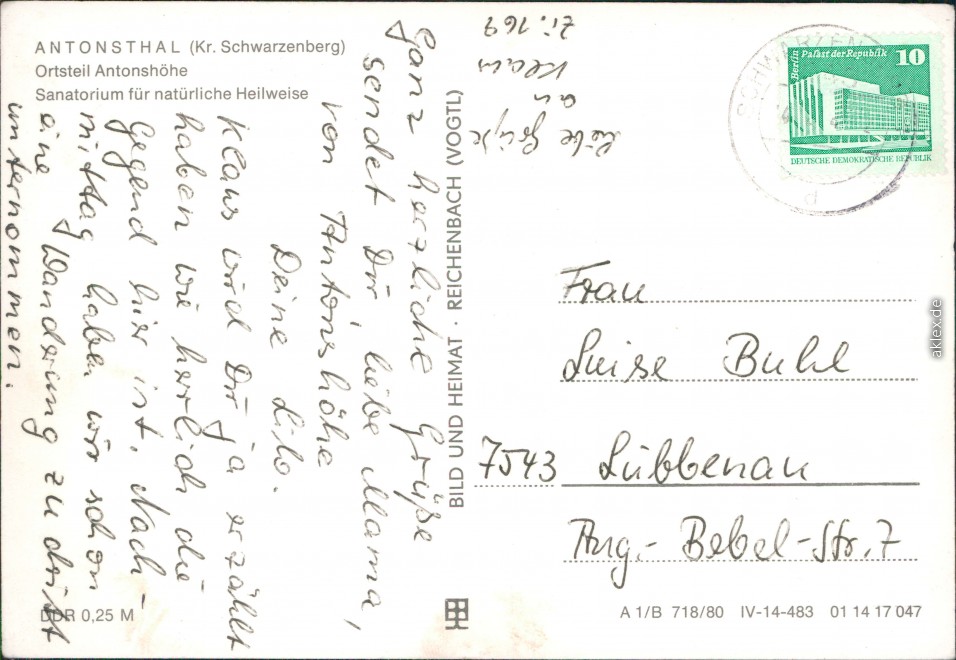 ANTONSTHAL (Kr. Schwarzenberg)
Ortsteil Antonshöhe
Sanatorium für natürliche Heilweise
Ganz herzliche Grüße
sendet Dir liebe Mama,
von Antonshöhe
Deine Lilo.
Klaus wird Dir ja erzählt
haben wie herrlich die
Gegend hier ist. Nach-
mittag haben wir schon
eine Wanderung zu dritt
unternommen.
Liebe Grüße
an
Klaus
Zi. 169
BILD UND HEIMAT · REICHENBACH (VOGTL)
Berlin Palast der Republik
10
DEUTSCHE DEMOKRATISCHE REPUBLIK
SCHWARZEN
d
Frau
Luise Buhl
7543 Lübbenau
Aug.-Bebel-Str. 7
DDR 0,25 M
A 1/B 718/80 IV-14-483 01 14 17 047
aklex.de